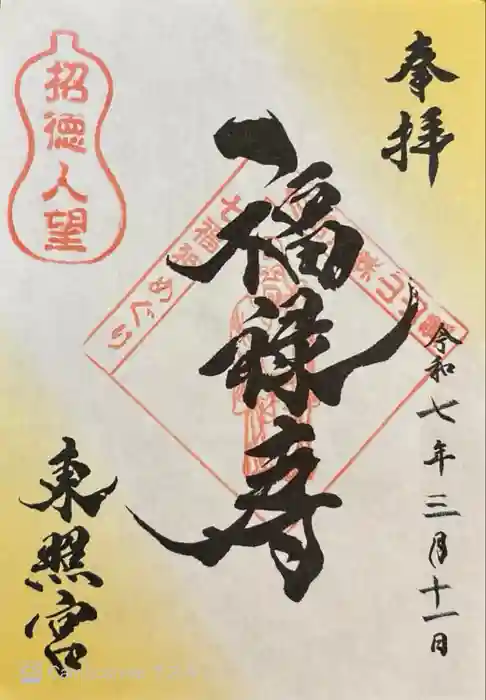 奉拝
令和七年三月十一日
福禄寿
七福神めぐり
招徳人望
東照宮